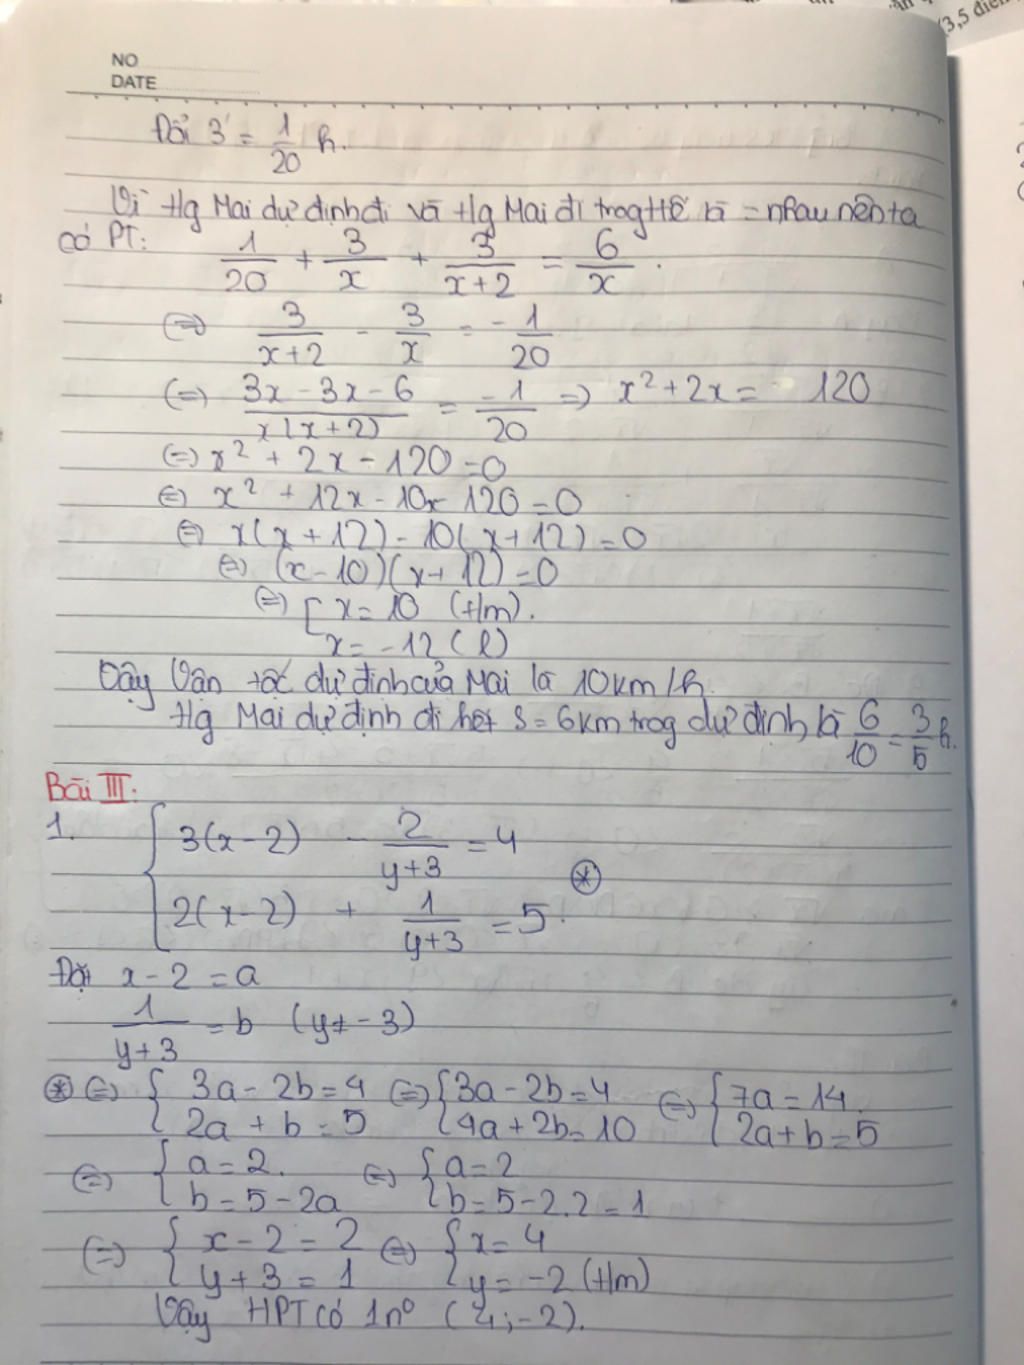 (3,5 điểm
NO
DATE
Đổi 3' = 1/20 h.
Vì tg Mai dự định đi và tg Mai đi trog ttế là = nhau nên ta
có PT: 1/20 + 3/x + 3/(x+2) = 6/x .
(=) 3/(x+2) - 3/x = -1/20
(=) (3x - 3x - 6)/(x(x+2)) = -1/20 =) x² + 2x = 120
(=) x² + 2x - 120 = 0
(=) x² + 12x - 10x - 120 = 0
(=) x(x + 12) - 10(x + 12) = 0
(=) (x - 10)(x + 12) = 0
(=) [ x = 10 (t/m).
x = -12 (l)
Vậy Vận tốc dự định của Mai là 10km/h.
Tg Mai dự định đi hết S = 6km trog dự định là 6/10 = 3/5 h.
Bài III:
1. { 3(x-2) - 2/(y+3) = 4
⊛
2(x-2) + 1/(y+3) = 5.
Đặt x - 2 = a
1/(y+3) = b (y ≠ -3)
⊛ (=) { 3a - 2b = 4 (=) { 3a - 2b = 4 (=) { 7a = 14.
2a + b = 5 4a + 2b = 10 2a + b = 5
(=) { a = 2. (=) { a = 2
b = 5 - 2a b = 5 - 2.2 = 1
(=) { x - 2 = 2 (=) { x = 4
y + 3 = 1 y = -2 (t/m)
Vậy HPT có 1 n° (4; -2).